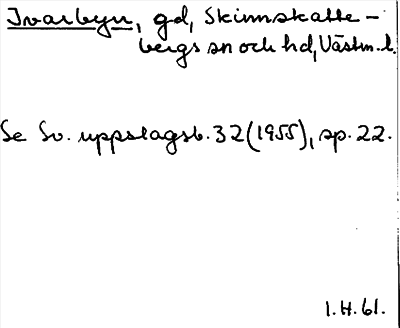 Ivarbyn, gd, Skinnskatte-
bergs sn och hd, Västm. l.
Se Sv. uppslagsb. 32 (1955), sp. 22.
I.H. 61.